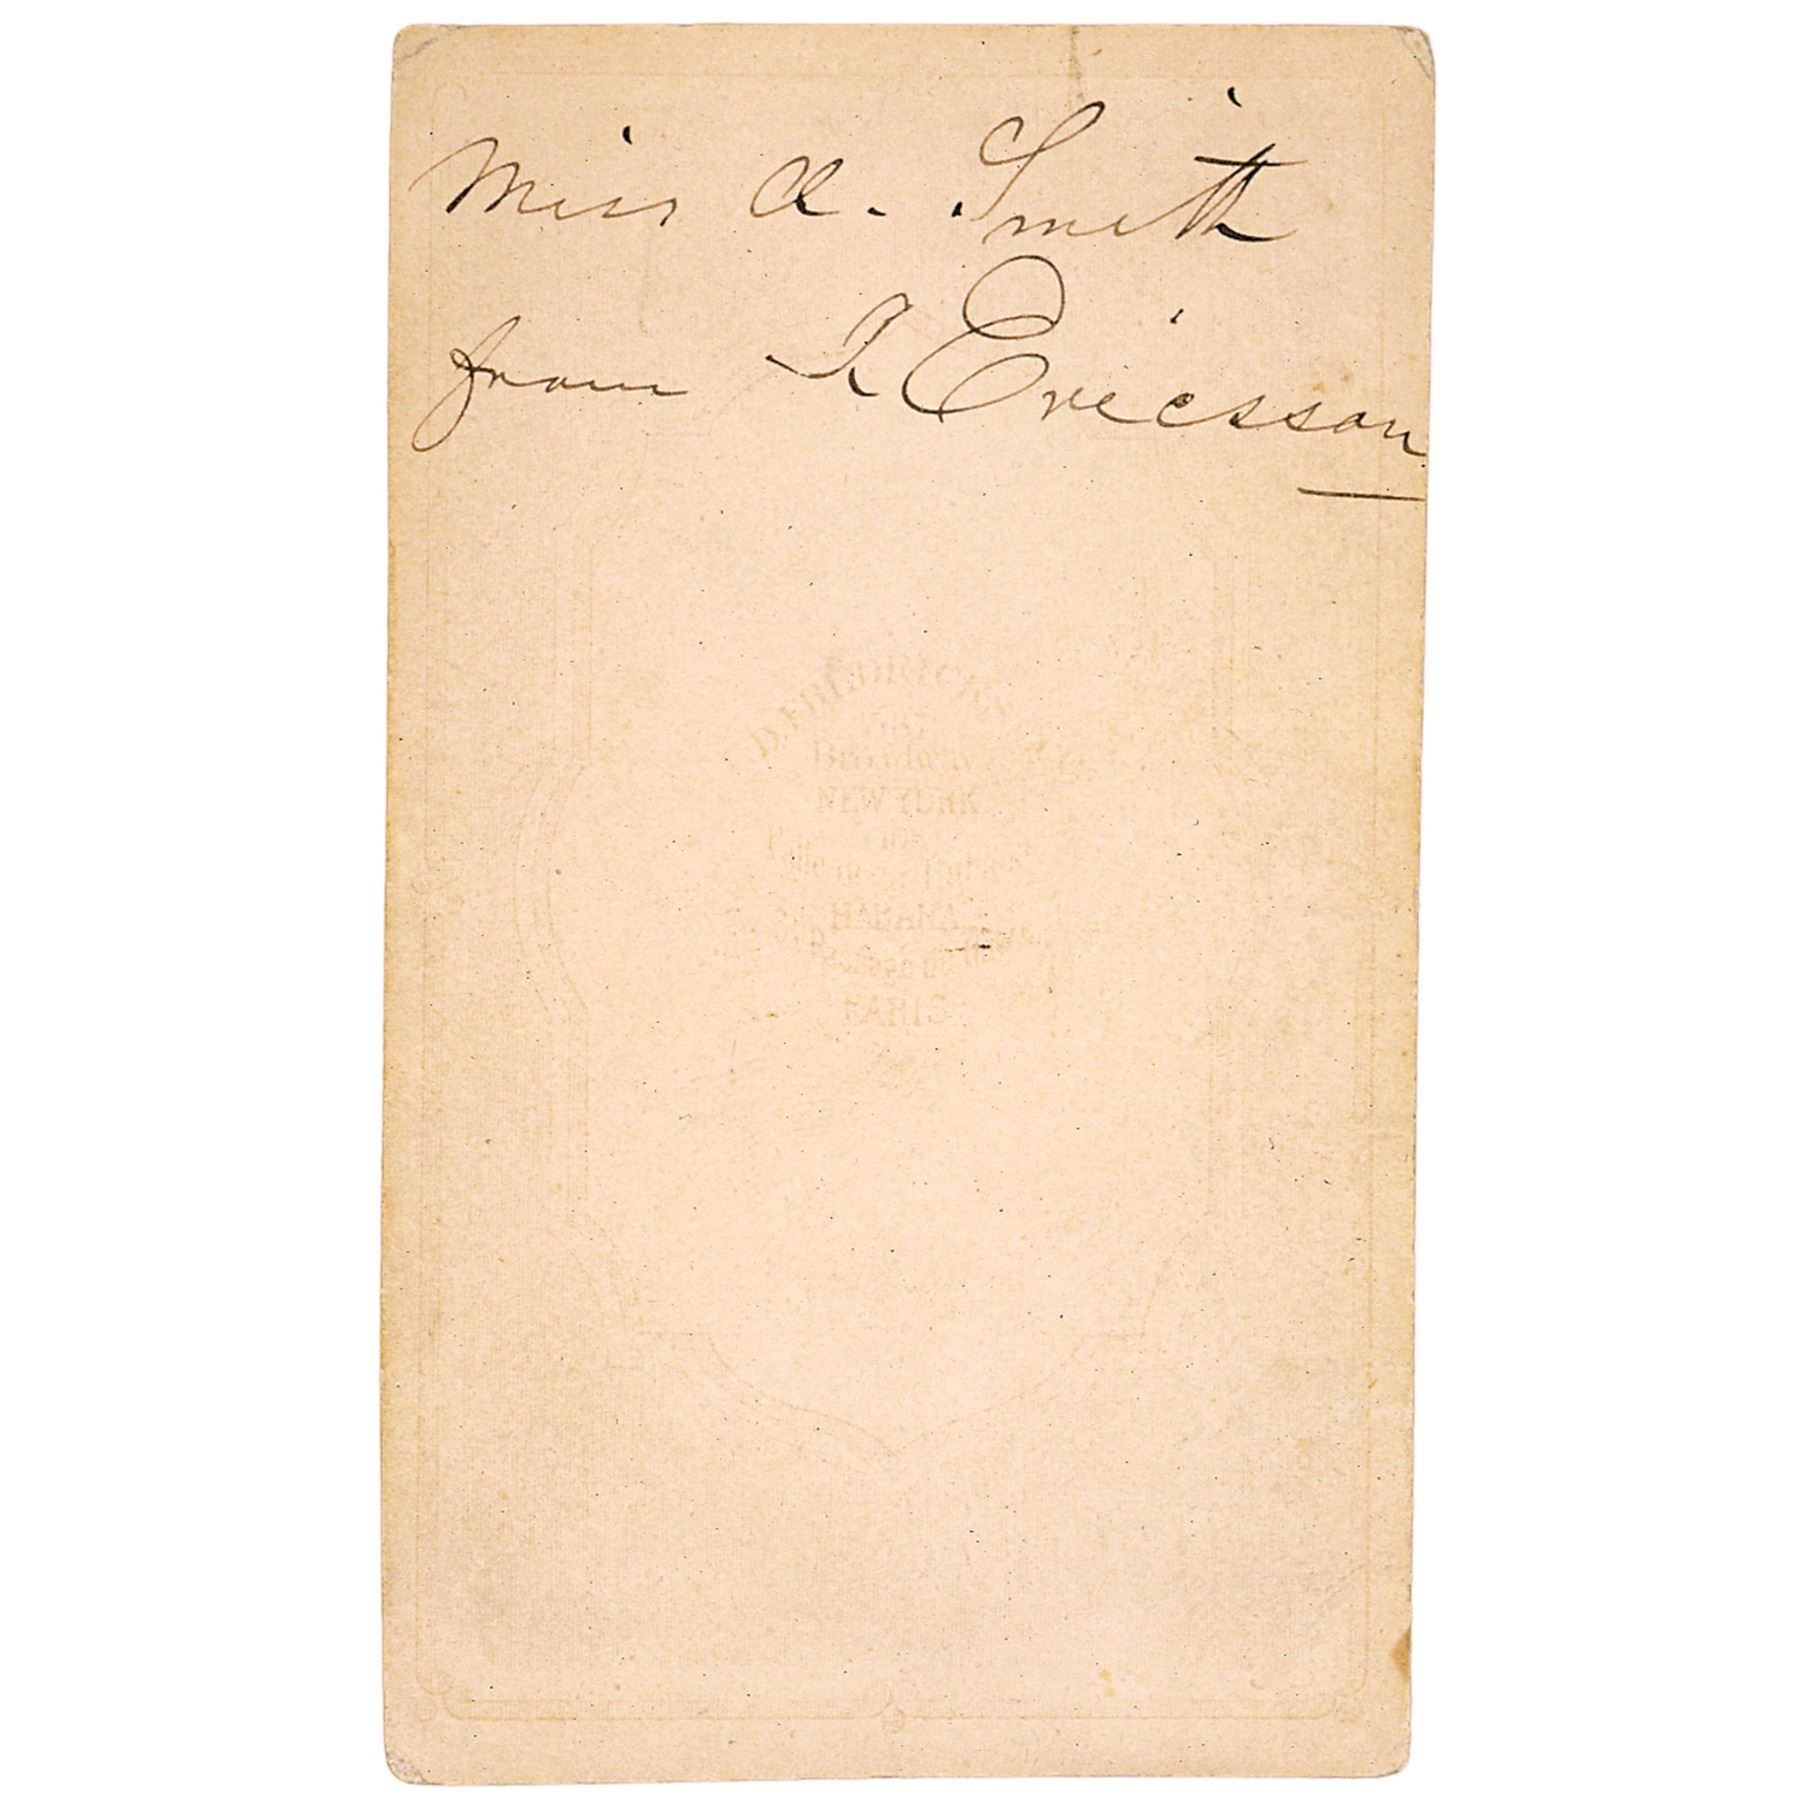 Miss A. Smith
from J Ericsson
D. FREDRICKS
587
Broadway
NEW YORK
HABANA
PARIS